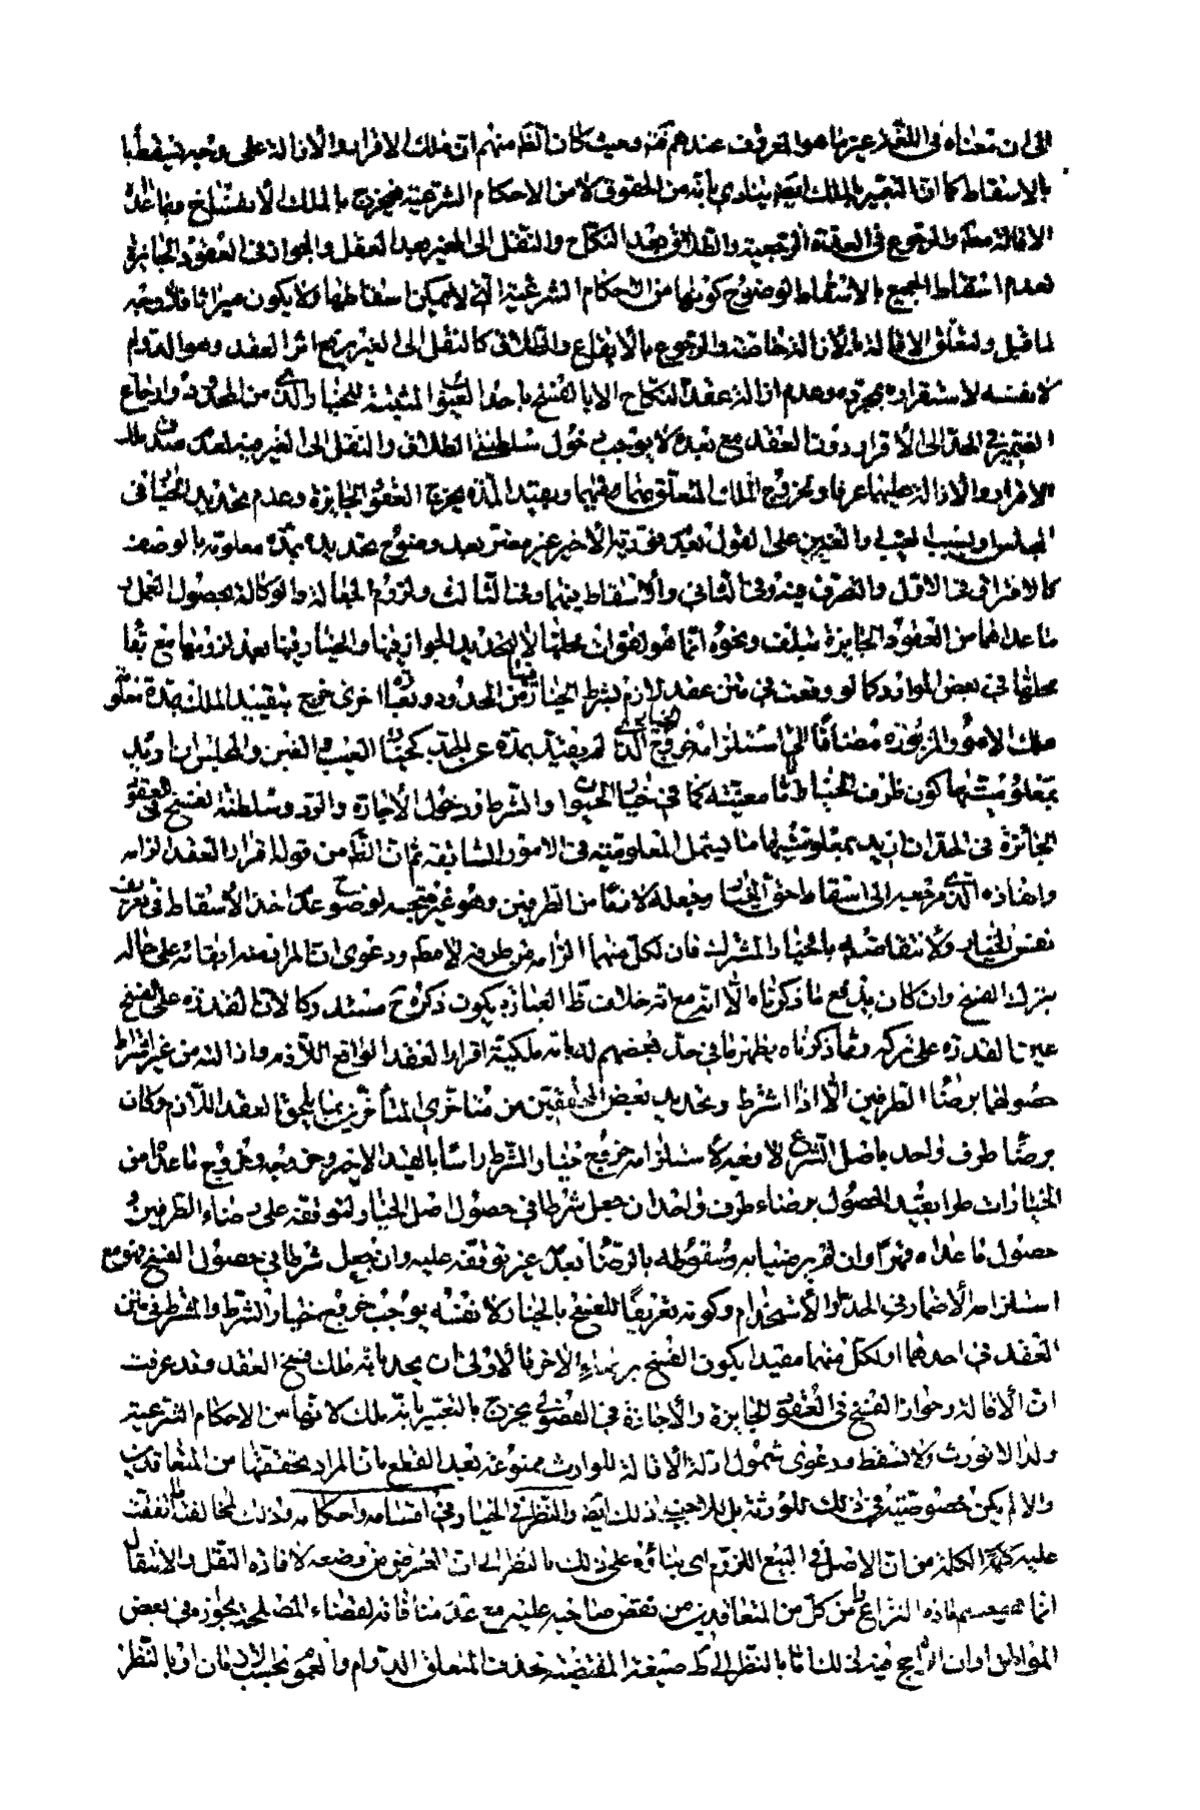 الى ان معناه فى اللغة غير ما هو المعروف عندهم فقه وحيث كان الظ منهم ان ملك الاقرار والازالة على وجه يسقط
بالاسقاط كما ان التعبير بالملك ايض ينادى بانه من الحقوق لا من الاحكام الشرعية فيخرج بالملك الانفساخ وما عدا
الاقالة مط والرجوع فى العدة الرجعية والطلاق بعد النكاح والنقل الى الغير بعد العقد والجواز فى العقود الجايزة
لعدم اسقاط الجميع بالاسقاط لوضوح كونها من الاحكام الشرعية التى لا يمكن اسقاطها ولا يكون ميراثا فلا وجه
لما قيل ولتعلق الاقالة بالازالة خاصة والرجوع بالايقاع والطلاق كالنقل الى الغير برفع اثر العقد وهو الدوام
لا نفسه لاستقراره بمجرده وعدم ازالة عقد النكاح الا بالفسخ باحد العيوب المثبتة للخيار الذى من المحدود وارجاع
الضمير فى الحد الى الاقرار دون العقد مع بعده لا يوجب دخول سلطنة الطلاق والنقل الى الغير فيه لعدم صدق ملك
الاقرار والازالة عليهما عرفا وخروج الملك المتعلق بهما منهما وبقيد المدة يخرج العقود الجايزة وعدم تحديد الخيار فى
المجلس وبسبب العيب والغبن على القول بعدم فوريته الاخير غير مضر بعد وضوح تحديده بمدة معلومة بالوصف
كالافتراق فى الاول والتصرف فيه وفى الثانى والاسقاط فيهما وفى الثالث ولزوم الجعالة والوكالة بحصول العمل و
ما عداهما من العقود الجايزة بتلف ونحوه انما هو لفوات محلها لا لتحديد الجواز فيها والخيار فيها بعد لزومها مع بقاء
محلها فى بعض الموارد كما لو وقعت فى متن عقد لازم بشرط الخيار فيها من المحدود وتارة اخرى خرج بتقييد الملك بمدة معلومة
ملك الامور المزبورة مضافا الى استلزامه خروج الخيار الذى لم يقيد بمدة عن الحد كخيار العيب والغبن والمجلس ان اريد
بمعلوميتها كون ظرف الخيار زمانا معينة كما فى خيار الحيوان والشرط ودخول الاجازة والرد وسلطنة الفسخ فى العقود
الجائزة فى الحد ان اريد بمعلوميتها ما يشمل المعلومية فى الامور السابقة ثم ان الظ من قوله اقرار العقد الزامه
وانفاذه الذى مرجعه الى اسقاط حق الخيار وجعله لازما من الطرفين وهو غير متجه لوضوح عدم اخذ الاسقاط فى تعريف
نفس الخيار ولانتقاضه بالخيار المشترك فان لكل منهما الزامه من طرفه لا مط ودعوى ان المراد منه ابقائه على حاله
بترك الفسخ وان كان يدفع ما ذكرناه الا انه مع انه خلاف ظ العبارة يكون ذكره ح مستدركا لان القدرة على الفسخ
عين القدرة على تركه ومما ذكرناه يظهر ما فى حد بعضهم له بانه ملكية اقرار العقد الواقع اللازم وازالته من غير اشتراط
حصولها برضا الطرفين الا اذا اشترط وتحديد بعض المحققين من متأخرى المتأخرين بما يلحق العقد اللازم وكان
برضا طرف واحد باصل الشرع لا وغيره لاستلزامه خروج خيار الشرط راسا بالقيد الاخير وخروجه وخروج ما عداه من
الخيارات طرا بقيد الحصول برضاء طرف واحد ان جعل شرطا فى حصول اصل الخيار لتوقفه على رضاء الطرفين و
حصول ما عداه قهرا وان لم يرضيا به وسقوطه بالرضا بعد غير توقفه عليه وان جعل شرطا فى حصول الفسخ فهو مع
استلزامه الاضمار فى الحد والاستخدام وكونه تعريفا للفسخ بالخيار لا نفسه يوجب خروج خيار الشرط والشرط فى متن
العقد فى احدهما او لكل منهما مقيدا بكون الفسخ برضاء الاخر فالاولى ان يحد بانه ملك فسخ العقد وقد عرفت
ان الاقالة وجواز الفسخ فى العقود الجايزة والاجازة فى الفضولى يخرج بالتعبير بانه ملك لانها من الاحكام الشرعية
ولذا لا تورث ولا تسقط ودعوى شمول ادلة الاقالة للوارث ممنوعة بعد القطع بان المراد تحققها من المتعاقدين
والا لم يكن خصوصية فى ذلك للورثة بل للاجنبى ذلك ايض والنظر فى الخيار وفى اقسامه واحكامه وذلك لمخالفته لما اتفقت
عليه كلمة الكل من ان الاصل فى البيع اللزوم اى بناؤه على ذلك بالنظر الى ان الغرض من وضعه لافادة النقل والانتقال
انما هو عدم هذه النزاع من كل من المتعاقدين من نقض صاحبه عليه مع عدم منافاته لقضاء المصلحة بجوازه فى بعض
الموارد او ان الراجح فيه ذلك اما بالنظر الى ظ صيغته المقتضية حذف المتعلق الدوام والعموم بحسب الازمان او بالنظر